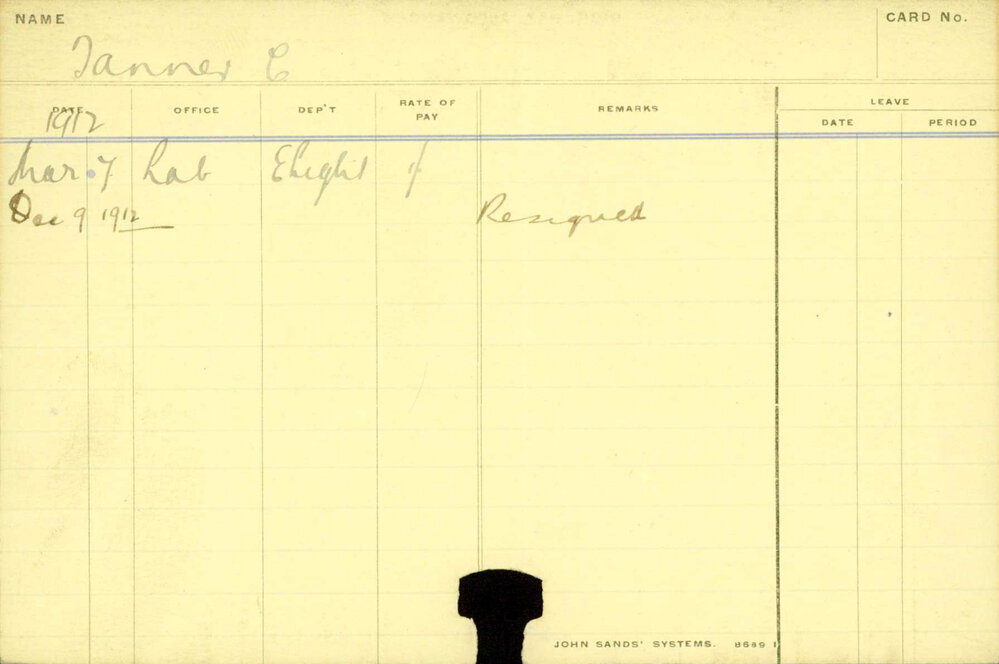 NAME
CARD No.
Tanner C
DATE OFFICE DEP'T RATE OF PAY REMARKS LEAVE
DATE PERIOD
1912
Mar. 7 Lab Elight
Dec 9 1912 Resigned
JOHN SANDS' SYSTEMS. 8689